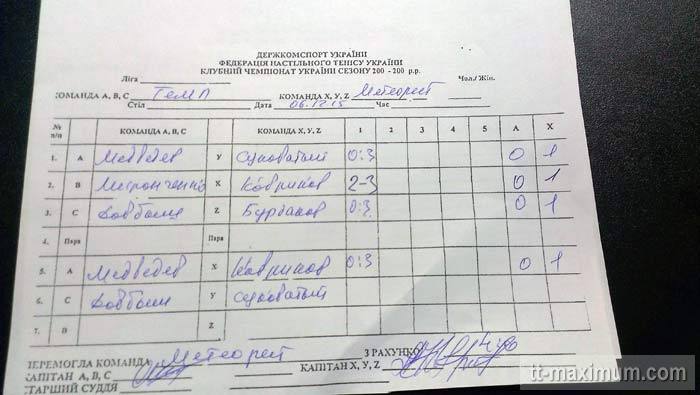 ДЕРЖКОМСПОРТ УКРАЇНИ
ФЕДЕРАЦІЯ НАСТІЛЬНОГО ТЕНІСУ УКРАЇНИ
КЛУБНИЙ ЧЕМПІОНАТ УКРАЇНИ СЕЗОНУ 200 - 200 р.р.
Ліга Чол./ Жін.
КОМАНДА А, В, С Темп КОМАНДА X, У, Z Метеорит
Стіл Дата 06.12.15 Час
№ п/п КОМАНДА А, В, С КОМАНДА X, У, Z 1 2 3 4 5 А X
1. А Медведев У 0:3 0 1
2. В X Ковриков 2-3 0 1
3. С Довбыш Z Бурдаков 0:3 0 1
4. Пара Пара
5. А Медведев X Ковриков 0:3 0 1
6. С Довбыш У
7. В Z
ПЕРЕМОГЛА КОМАНДА Метеорит З РАХУНКОМ
КАПІТАН А, В, С КАПІТАН X, У, Z
СТАРШИЙ СУДДЯ
tt-maximum.com